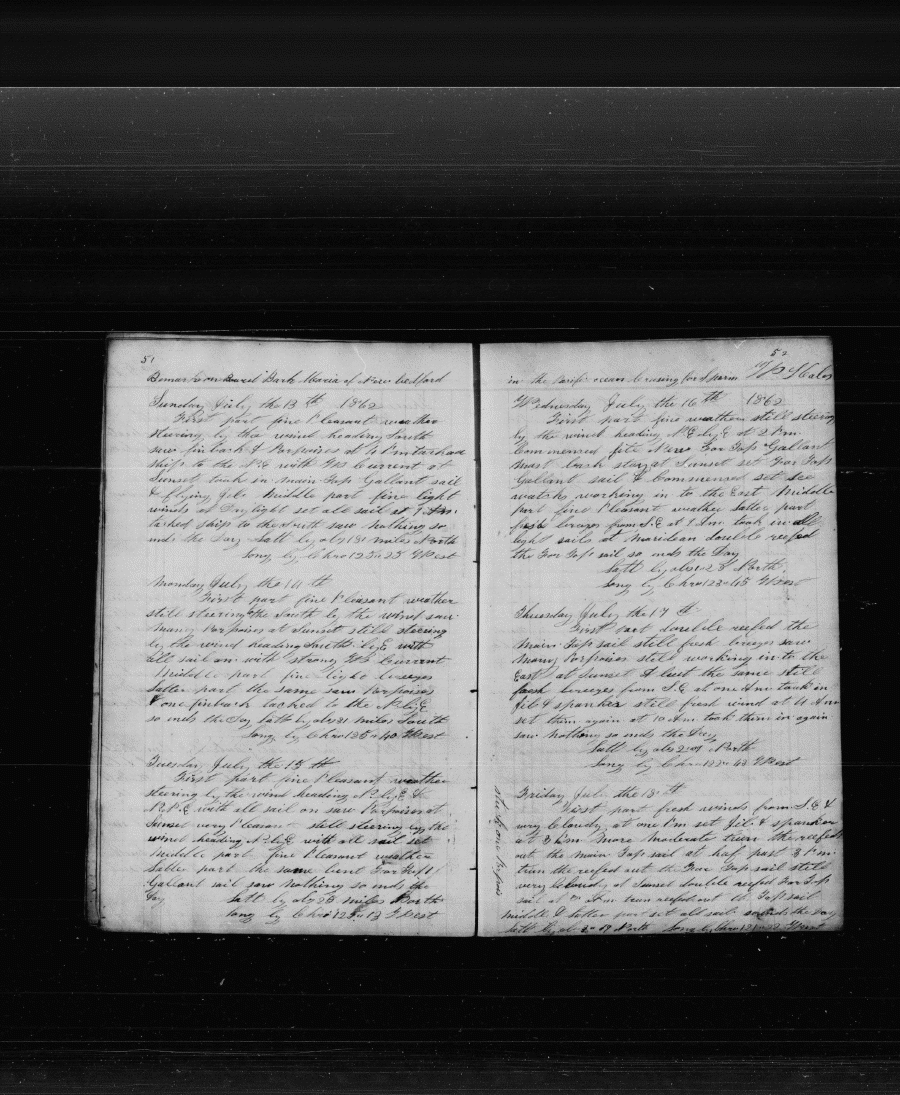 51
Remarks on Board Bark Maria of New Bedford
Sunday July the 13th 1862
First part fine Pleasant weather
steering by the wind heading South
saw finback & Porpoises at 4 Pm tacked
ship to the N.E with Current at
Sunset took in main Top Gallant sail
& flying Jib Middle part fine light
winds at Daylight set all sail at 9 Am
tacked ship to the South saw nothing so
ends the Day Latt by obs 181 miles North
Long by Chro 125 25 West
Monday July the 14th
First part fine Pleasant weather
still steering to the South by the wind saw
Many Porpoises at Sunset still steering
by the wind heading South by E with
all sail on with strong Current
Middle part fine light breezes
Latter part the same saw Porpoises
& one finback tacked to the N. by E
so ends the Day Latt by obs 31 miles South
Long by Chro 125 40 West
Tuesday July the 15th
First part fine Pleasant weather
steering by the wind heading N. by E &
N.N.E with all sail on saw Porpoises at
Sunset very Pleasant still steering by the
wind heading N. by E with all sail set
Middle part fine Pleasant weather
Latter part the same bent For Top
Gallant sail saw nothing so ends the
Day Latt by obs 28 miles North
Long by Chro 125 13 West
52
in the Pacific ocean Cruising for Sperm Whales
Wednesday July the 16th 1862
First part fine weather still steering
by the wind heading N.E by E at 2 Pm
Commenced New For Top Gallant
Mast back stay at Sunset set For Top
Gallant sail & Commenced set sea
watch working in to the East Middle
part fine Pleasant weather Latter part
fresh breezes from S.E at 9 Am took in all
light sails at Maridean double reefed
the For Top sail so ends the Day
Latt by obs 1 28 North
Long by Chro 123 45 West
Thursday July the 17th
First part double reefed the
Main Top sail still fresh breezes saw
Many Porpoises still working in to the
East at sunset the same still
fresh breezes from S.E at one Am took in
Jib & spanker still fresh wind at 4 Am
set them again at 10 Am took them in again
saw nothing so ends the Day
Latt by obs 2 01 North
Long by Chro 122 43 West
struck one Porpois
Friday July the 18th
First part fresh winds from S.E &
very Cloudy at one Pm set Jib & spanker
at 3 Pm more Moderate turn the reefs
out the Main Top sail at half past 3 Pm
turn the reefed out the For Top sail still
very Cloudy at Sunset double reefed For Top
sail at Am turn reefs out Top sail
Middle & Latter part set all sail so ends the Day
Latt by ob 2 19 North Long by Chro 121 22 West